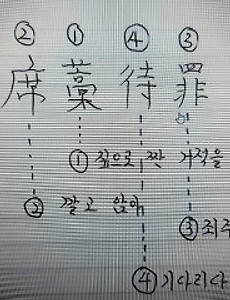 ② ① ④ ③
席 藁 待 罪
① 짚으로 짠 거적을
② 깔고 앉아
③ 죄주
④ 기다리다